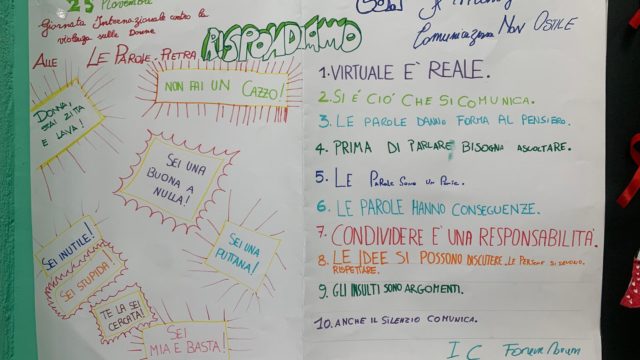 25 Novembre
Giornata Internazionale contro la
violenza sulle Donne
ALLE LE PAROLE - PIETRA
RISPONDIAMO
DONNA,
STAI ZITA
E LAVA!
NON FAI UN CAZZO!
SEI UNA
BUONA A
NULLA!
SEI UNA
PUTTANA!
SEI INUTILE!
SEI STUPIDA!
TE LA SEI
CERCATA!
SEI
MIA E BASTA!
Comunicazione Non OSTILE
1. VIRTUALE E' REALE.
2. SI E' CIO' CHE SI COMUNICA.
3. LE PAROLE DANNO FORMA AL PENSIERO.
4. PRIMA DI PARLARE BISOGNA ASCOLTARE.
5. LE PAROLE SONO UN
6. LE PAROLE HANNO CONSEGUENZE.
7. CONDIVIDERE E' UNA RESPONSABILITÀ.
8. LE IDEE SI POSSONO DISCUTERE. LE PERSONE SI DEVONO
RISPETTARE.
9. GLI INSULTI SONO ARGOMENTI.
10. ANCHE IL SILENZIO COMUNICA.
I C Forum